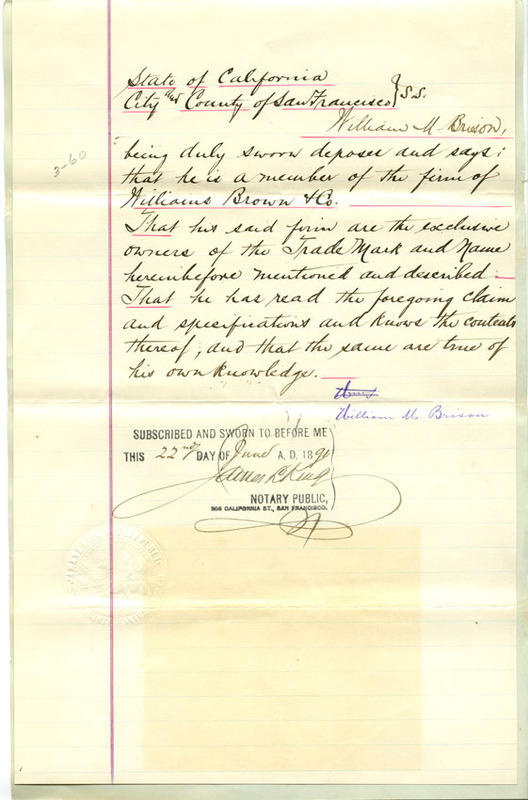 State of California
City and County of San Francisco } S.S.
William M. Brison,
3-60
being duly sworn deposes and says:
that he is a member of the firm of
Williams Brown & Co.
That his said firm are the exclusive
owners of the Trade Mark and Name
hereinbefore mentioned and described.
That he has read the foregoing claim
and specifications and knows the contents
thereof, and that the same are true of
his own knowledge.
William M. Brison
SUBSCRIBED AND SWORN TO BEFORE ME
THIS 22nd DAY OF June A. D. 1890
James L. King
NOTARY PUBLIC,
CALIFORNIA ST., SAN FRANCISCO.